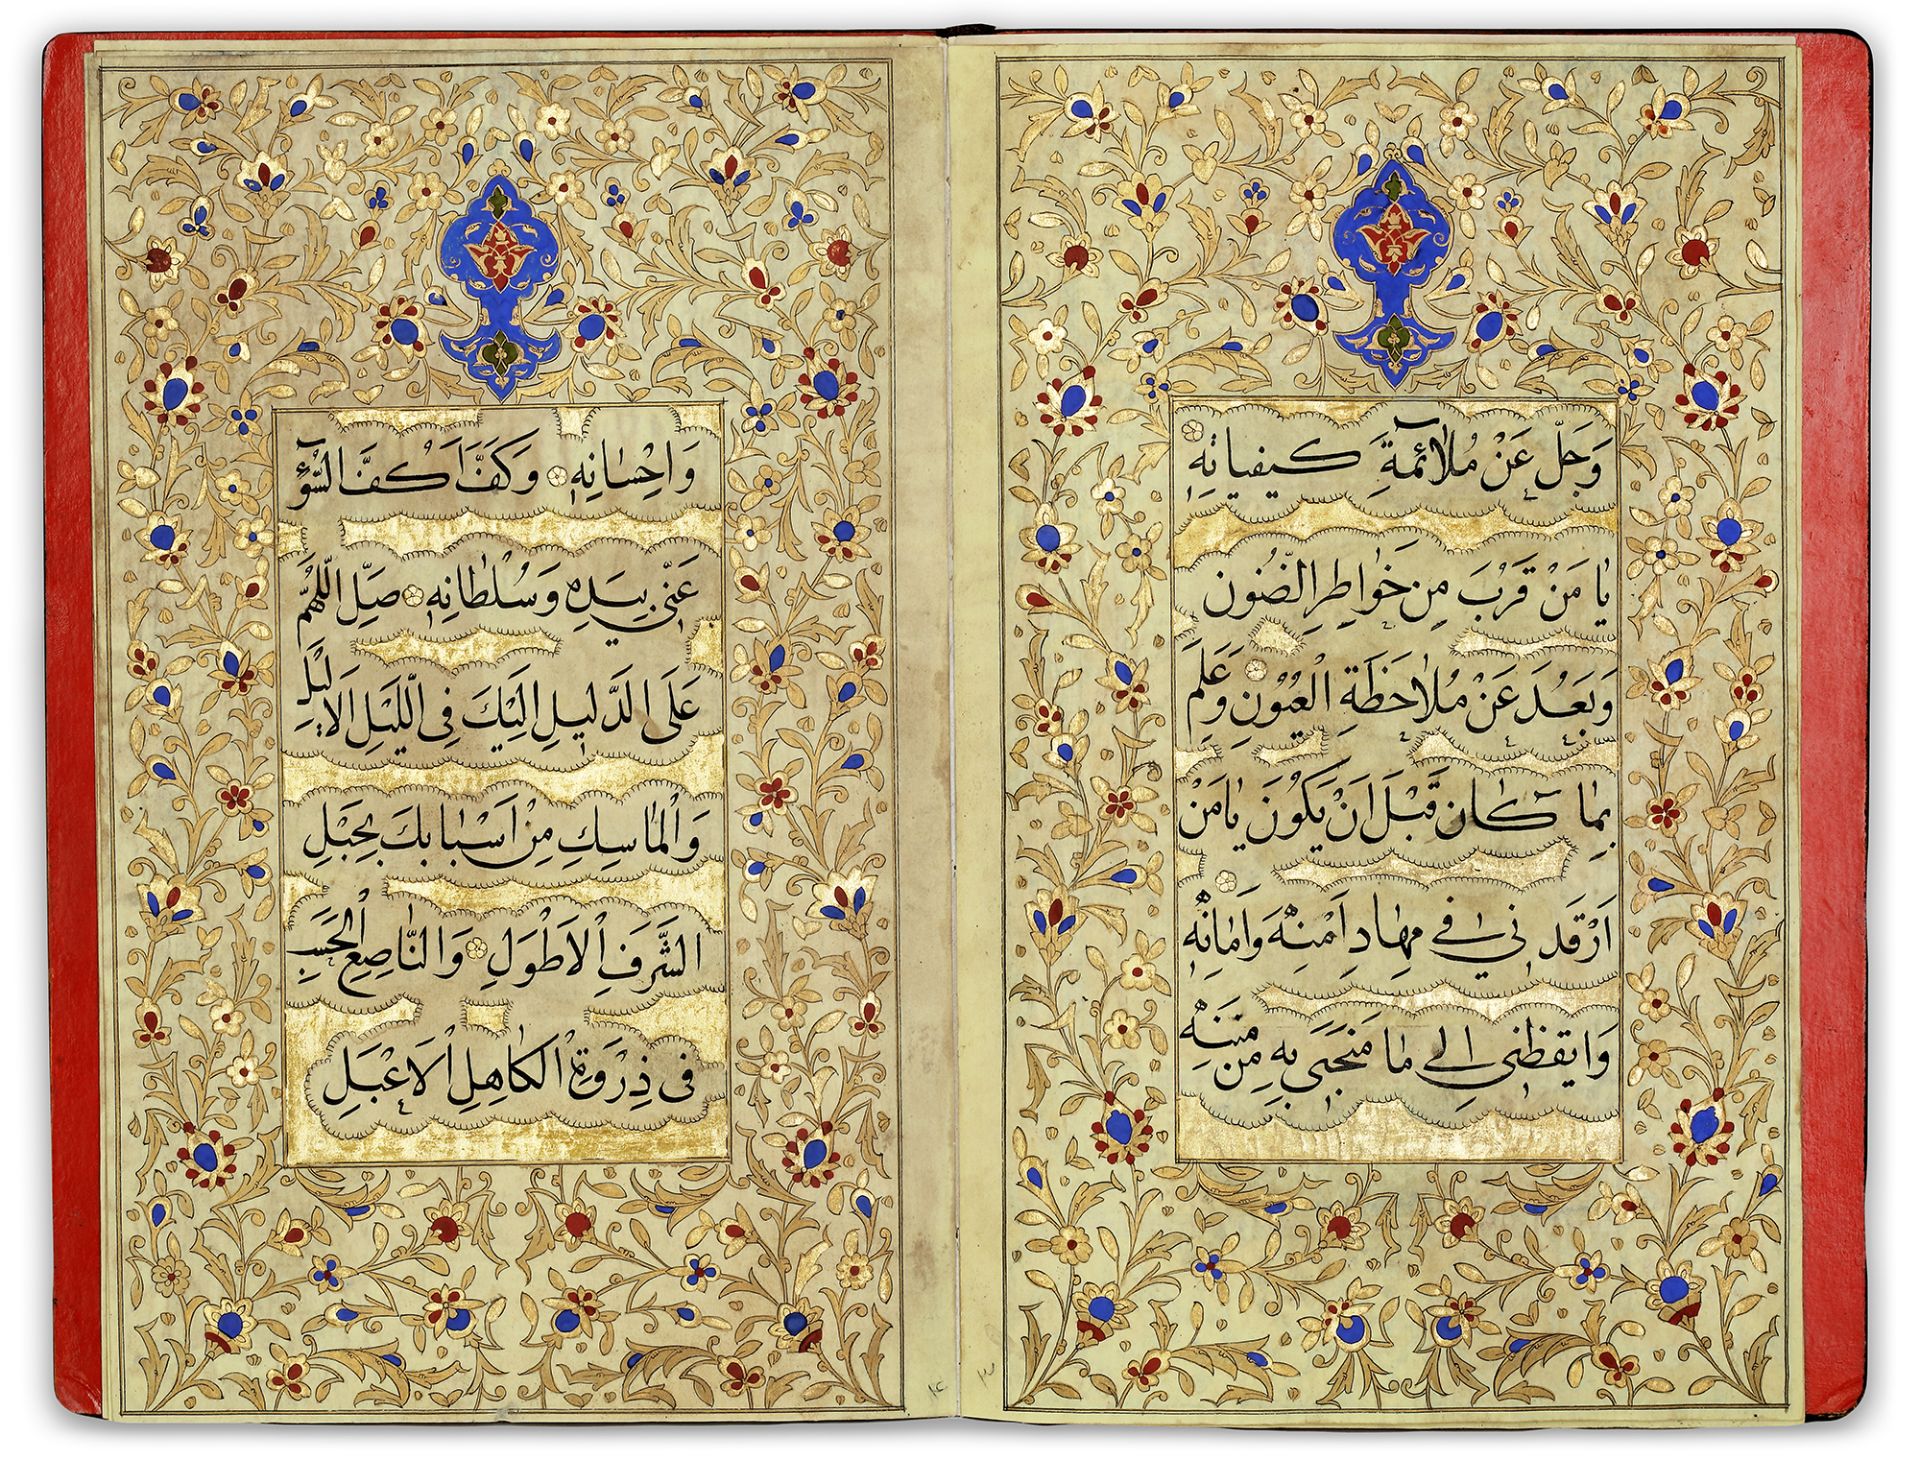 وَجَلَّ عَنْ مُلاٰئَمَةِ كَيفياتِهٖ
يٰا مَنْ قَرُبَ مِن خَواطِرِ الضُّنُون
وَبَعُدَ عَنْ مُلاٰحَظَةِ الْعُيُونِ وَعَلِمَ
بِمٰا كٰان قَبْلَ اَنْ يَكُونَ يٰا مَنْ
اَرْقَدَنٖي فٖي مِهٰادِ اَمْنِهٖ وَاَمٰانِهٖ
وَايقظنٖي اِلٰى مٰا مَنَحَنٖي بِهٖ مِنْ مِنَنِهٖ
وَاِحْسٰانِهٖ وَكَفَّ اَكُفَّ السُّوٓءِ
عَنّٖي بِيَدِهٖ وَسُلْطٰانِهٖ صَلِّ اللّٰهُمَّ
عَلَى الدَّلٖيلِ اِلَيْكَ فِي اللَّيْلِ الْاَلْيَلِ
وَالْمٰاسِكِ مِنْ اَسْبٰابِكَ بِحَبْلِ
الشَّرَفِ الْاَطْوَلِ وَالنّٰاصِعِ الْحَسَبِ
فٖي ذِرْوَةِ الْكٰاهِلِ الْاَعْبَلِ